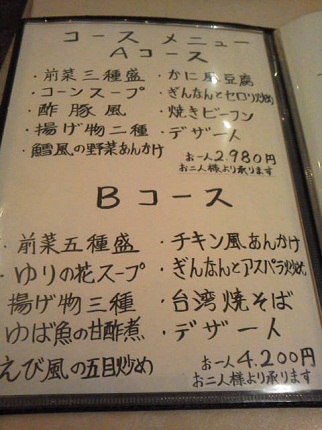 コース メニュー
Aコース
・前菜三種盛
・コーンスープ
・酢豚風
・揚げ物二種
・鱈風の野菜あんかけ
・かに風豆腐
・ぎんなんとセロリ炒め
・焼きビーフン
・デザート
お一人2,980円
お二人様より承ります
Bコース
・前菜五種盛
・ゆりの花スープ
揚げ物三種
ゆば魚の甘酢煮
えび風の五目炒め
・チキン風あんかけ
・ぎんなんとアスパラ炒め
・台湾焼そば
・デザート
お一人4,200円
お二人様より承ります